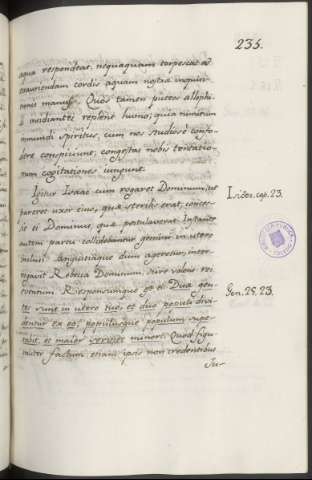 235.
aqua respondeat, nequaquam torpescat ad
exauriendam cordis aquam nostræ inquisi-
tionis manus. Quos tamen puteos allophi-
li invidiantes replent humo; quia nimirum
immundi spiritus, cum nos studiosè confo-
dere conspiciunt, congestas nobis tentatio-
num cogitationes ingerunt.
Igitur Isaac cum rogaret Dominum, ut
Isidor. cap. 23.
pareret uxor eius, quæ sterilis erat, conces-
sit ei Dominus, quæ postulaverat. Instanter
autem partu collidebantur gemini in utero
angustiaque dum ageretur, inter-
rogavit Rebecca Dominum, scire volens rei
eventum. Responsumque est ei: Duæ gen-
Gen. 25. 23.
tes sunt in utero tuo, et duo populi divi-
dentur ex eo, populusque populum supe-
rabit, et maior serviet minori. Quod figu-
raliter factum etiam ipsis non credentibus
Iu-